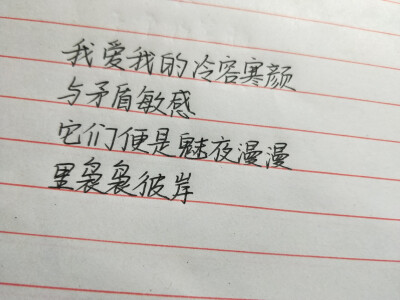 我爱我的冷容寒颜
与矛盾敏感
它们便是魅夜漫漫
里袅袅彼岸